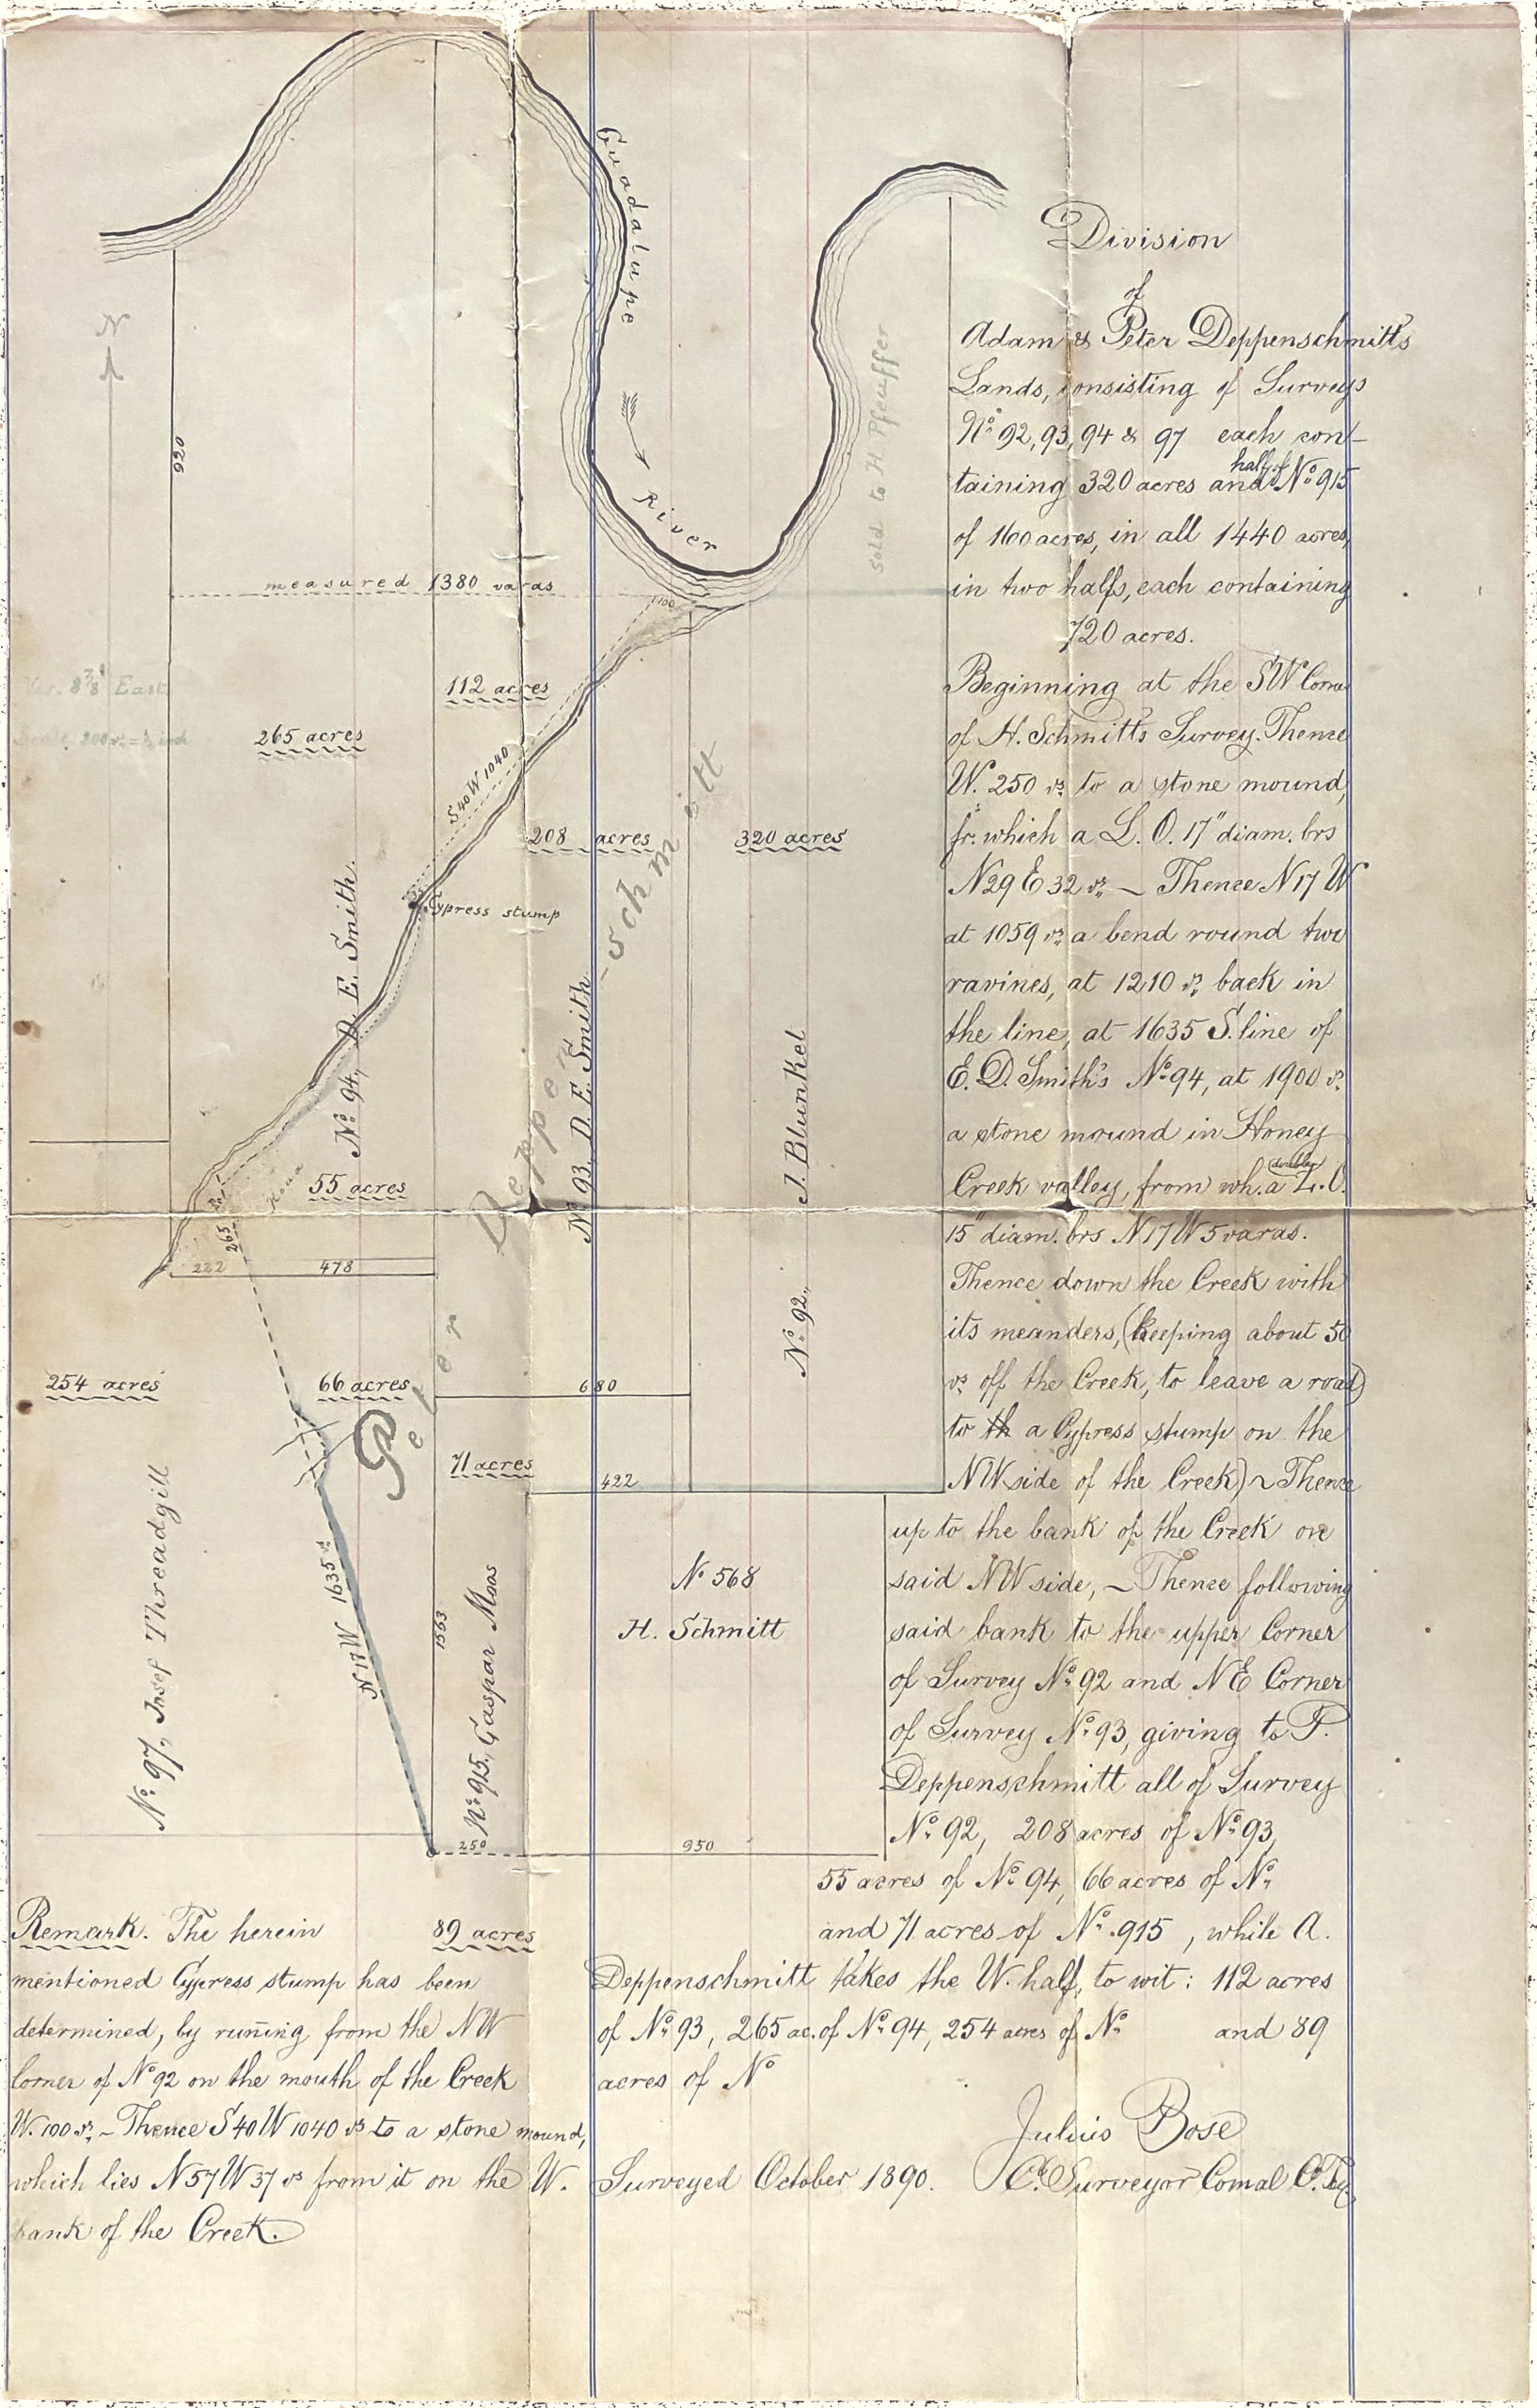 Guadalupe
River
N
920
sold to H Pfeuffer
measured 1380 varas
100
Var. 8⅞ East
Scale, 200 vrs = ½ inch
265 acres
112 acres
S 40 W 1040
208 acres
320 acres
Cypress stump
No. 94, D. E. Smith.
No. 93, D. E. Smith
No. 92, J. Blunkel
Peter Deppen-schmitt
Road
55 acres
265
222
478
254 acres
66 acres
680
71 acres
422
No. 97, Josef Threadgill
N 17 W 1635 vs
1563
No. 915, Caspar Moos
No 568
H. Schmitt
250
950
89 acres
Division
of
Adam & Peter Deppenschmitt's
Lands, consisting of Surveys
No. 92, 93, 94 & 97 each con-
taining 320 acres and half of No 915
of 160 acres, in all 1440 acres,
in two halfs, each containing
720 acres.
Beginning at the SW Corner
of H. Schmitt's Survey. Thence
W. 250 vs. to a stone mound,
fr. which a L. O. 17" diam. brs
N29 E 32 vs. – Thence N 17 W
at 1059 vs. a bend round two
ravines, at 1210 vs. back in
the line, at 1635 S. line of
E. D. Smith's No. 94, at 1900 vs.
a stone mound in Honey
Creek valley, from wh. a double L. O.
15" diam. brs N 17 W 5 varas.
Thence down the Creek with
its meanders, (keeping about 50
vs. off the Creek, to leave a road)
to th a Cypress stump on the
NW side of the Creek) ~ Thence
up to the bank of the Creek on
said NW side, – Thence following
said bank to the upper Corner
of Survey No. 92 and NE Corner
of Survey No. 93, giving to P.
Deppenschmitt all of Survey
No. 92, 208 acres of No. 93,
55 acres of No. 94, 66 acres of No.
and 71 acres of No. 915, while A.
Deppenschmitt takes the W. half, to wit: 112 acres
of No. 93, 265 ac. of No. 94, 254 acres of No and 89
acres of No
Julius Bose
Surveyed October 1890. Co. Surveyor Comal Co. Tex.
Remark. The herein
mentioned Cypress stump has been
determined, by runing from the NW
Corner of No 92 on the mouth of the Creek
W. 100 vs. – Thence S 40 W 1040 vs to a stone mound,
which lies N 57 W 37 vs from it on the W.
bank of the Creek.